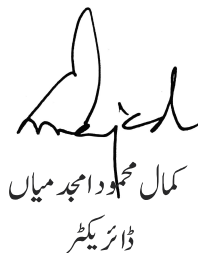 کمال محمود امجد میاں
ڈائریکٹر